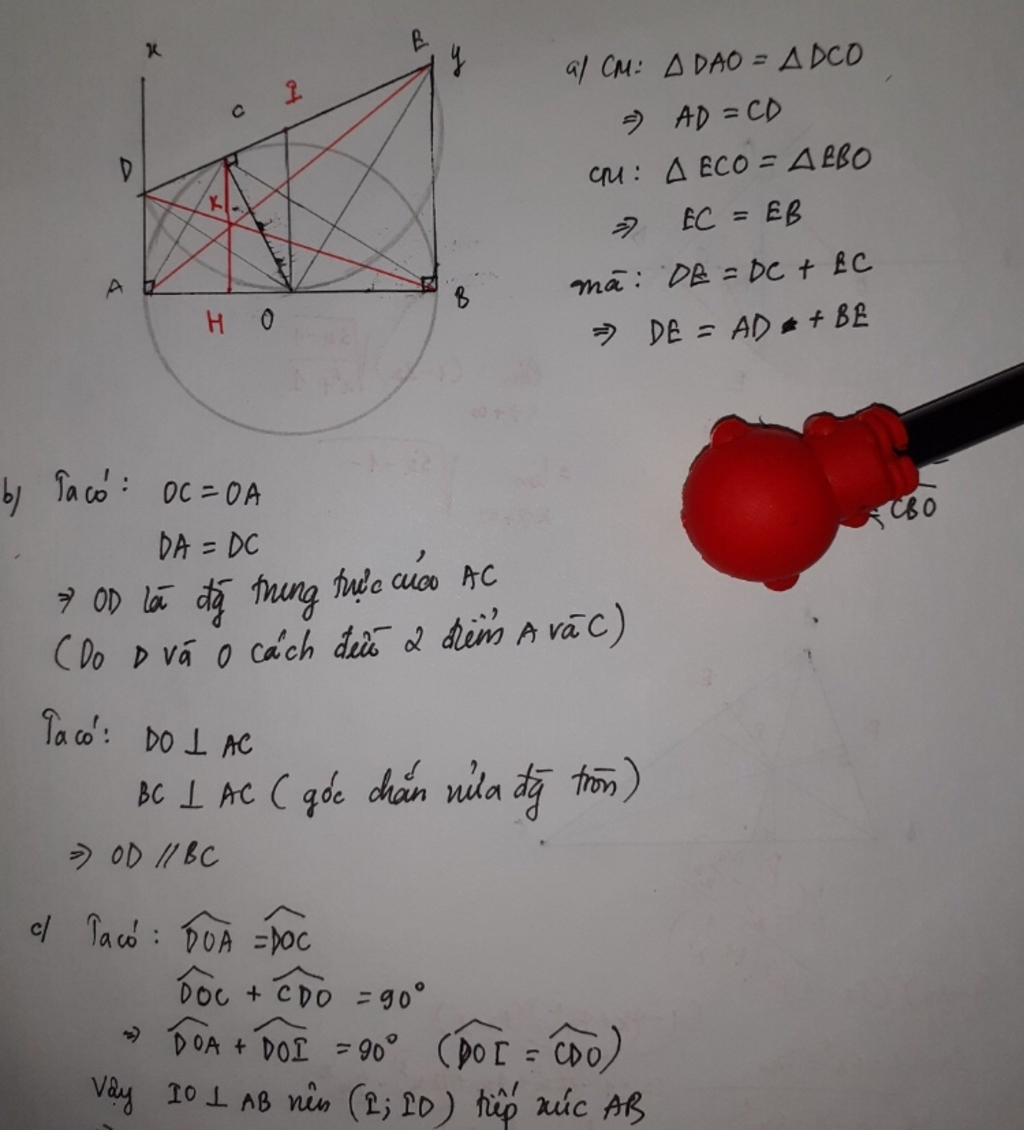 x
E y
I
C
D
K
A
B
H O
a/ CM: △DAO = △DCO
⇒ AD = CD
CM: △ECO = △EBO
⇒ EC = EB
mà: DE = DC + EC
⇒ DE = AD + BE
CBO
b) Ta có: OC = OA
DA = DC
⇒ OD là đg̃ trung trực của AC
(Do D và O cách đều 2 điểm A và C)
Ta có: DO ⊥ AC
BC ⊥ AC (góc chắn nửa đg̃ tròn)
⇒ OD // BC
c/ Ta có: DOA = DOC
DOC + CDO = 90°
⇒ DOA + DOI = 90° (DOI = CDO)
Vậy IO ⊥ AB nên (I; ID) tiếp xúc AB